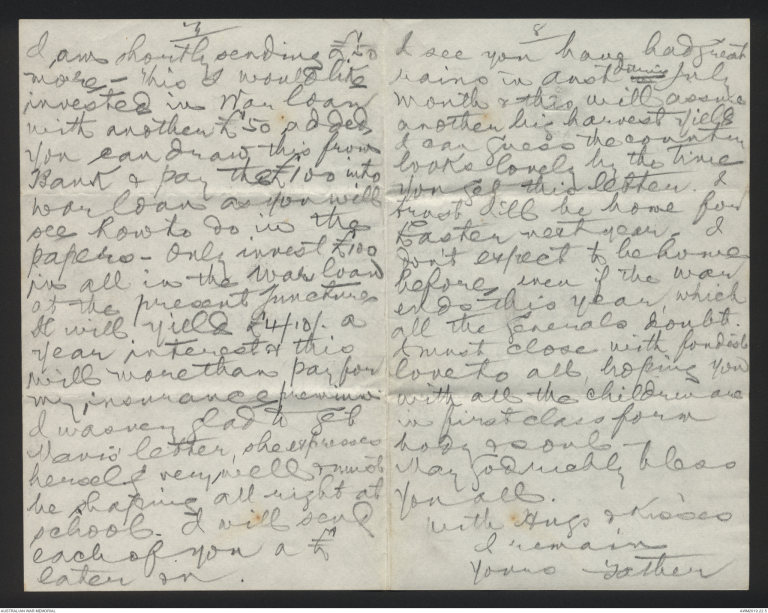 7
I am shortly sending £50
more - this I would like
invested in War loan
with another £50 added
you can draw this from
Bank & pay the £100 into
war loan as you will
see how to do in the
papers - Only invest £100
in all in the War loan
at the present juncture
It will yield £4/10/- a
year interest & this
will more than pay for
my insurance premium
I was very glad to get
Mavis letter, she expresses
herself very well & must
be shaping all right at
school. I will send
each of you a £1
later on.
8
I see you have had great
rains in Aust during July
month & this will assure
another big harvest yield
I can guess the country
looks lovely by the time
you get this letter. I
trust I'll be home for
Easter next year. I
don't expect to be home
before, even if the war
ends this year, which
all the Generals doubt.
I must close with fondest
love to all, hoping you
with all the children are
in first class form
body & souls -
May God richly bless
you all.
With Hugs & Kisses
I remain
Yours Father
AUSTRALIAN WAR MEMORIAL